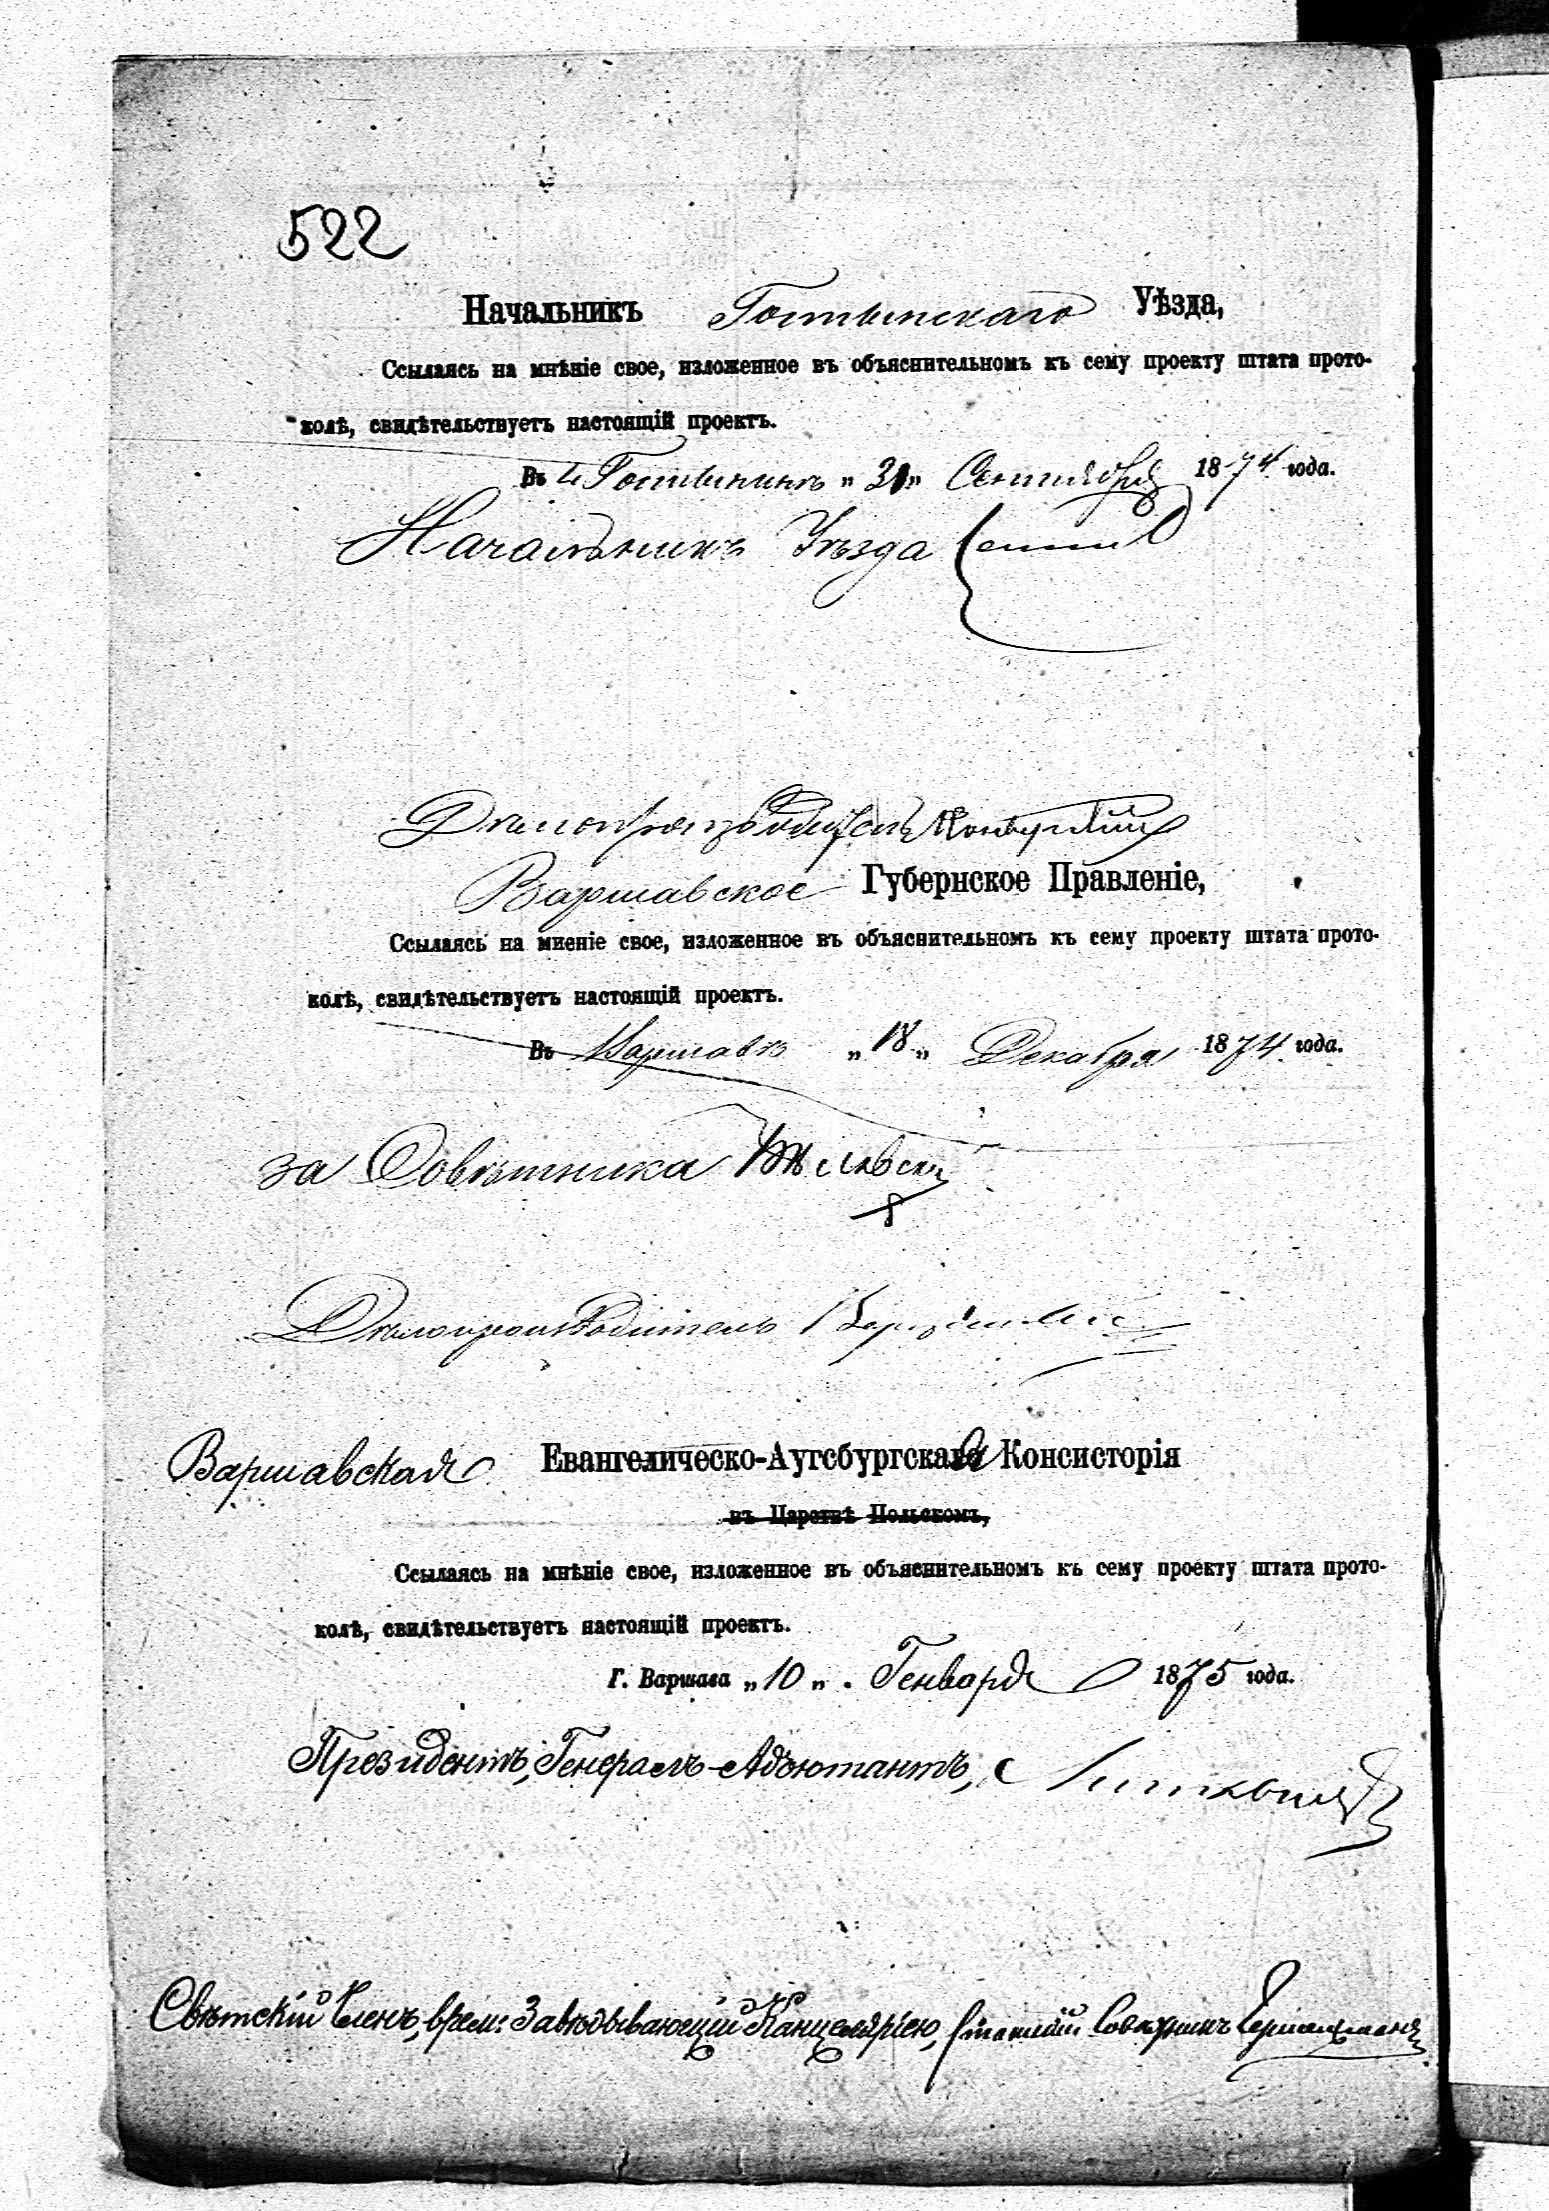 522
Начальникъ Гостынскаго Уѣзда,
Ссылаясь на мнѣніе свое, изложенное въ объяснительномъ къ сему проекту штата прото-
колѣ, свидѣтельствуетъ настоящій проектъ.
Въ Г. Гостынинѣ „ „ Сентября 1874 года.
Начальникъ Уѣзда
Дѣлопроизводитель
Варшавское Губернское Правленіе,
Ссылаясь на миеніе свое, изложенное въ объяснительномъ къ сему проекту штата прото-
колѣ, свидѣтельствуетъ настоящій проектъ.
Въ Варшавѣ „18„ Декабря 1874 года.
за Совѣтника
Дѣлопроизводитель
Варшавская Евангелическо-Аугсбургская Консисторія
въ Царствѣ Польскомъ,
Ссылаясь на мнѣніе свое, изложенное въ объяснительномъ къ сему проекту штата прото-
колѣ, свидѣтельствуетъ настоящій проектъ.
Г. Варшава „10„ Генваря 1875 года.
Президентъ, Генералъ-Адъютантъ,
Свѣтскій Членъ, врем: Завѣдывающій Канцеляріею, Статскій Совѣтникъ